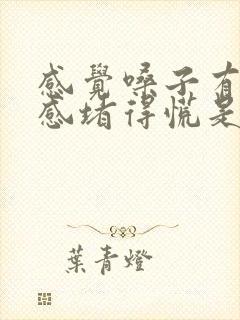 感覺嗓子有
感堵得慌是
葉青燈